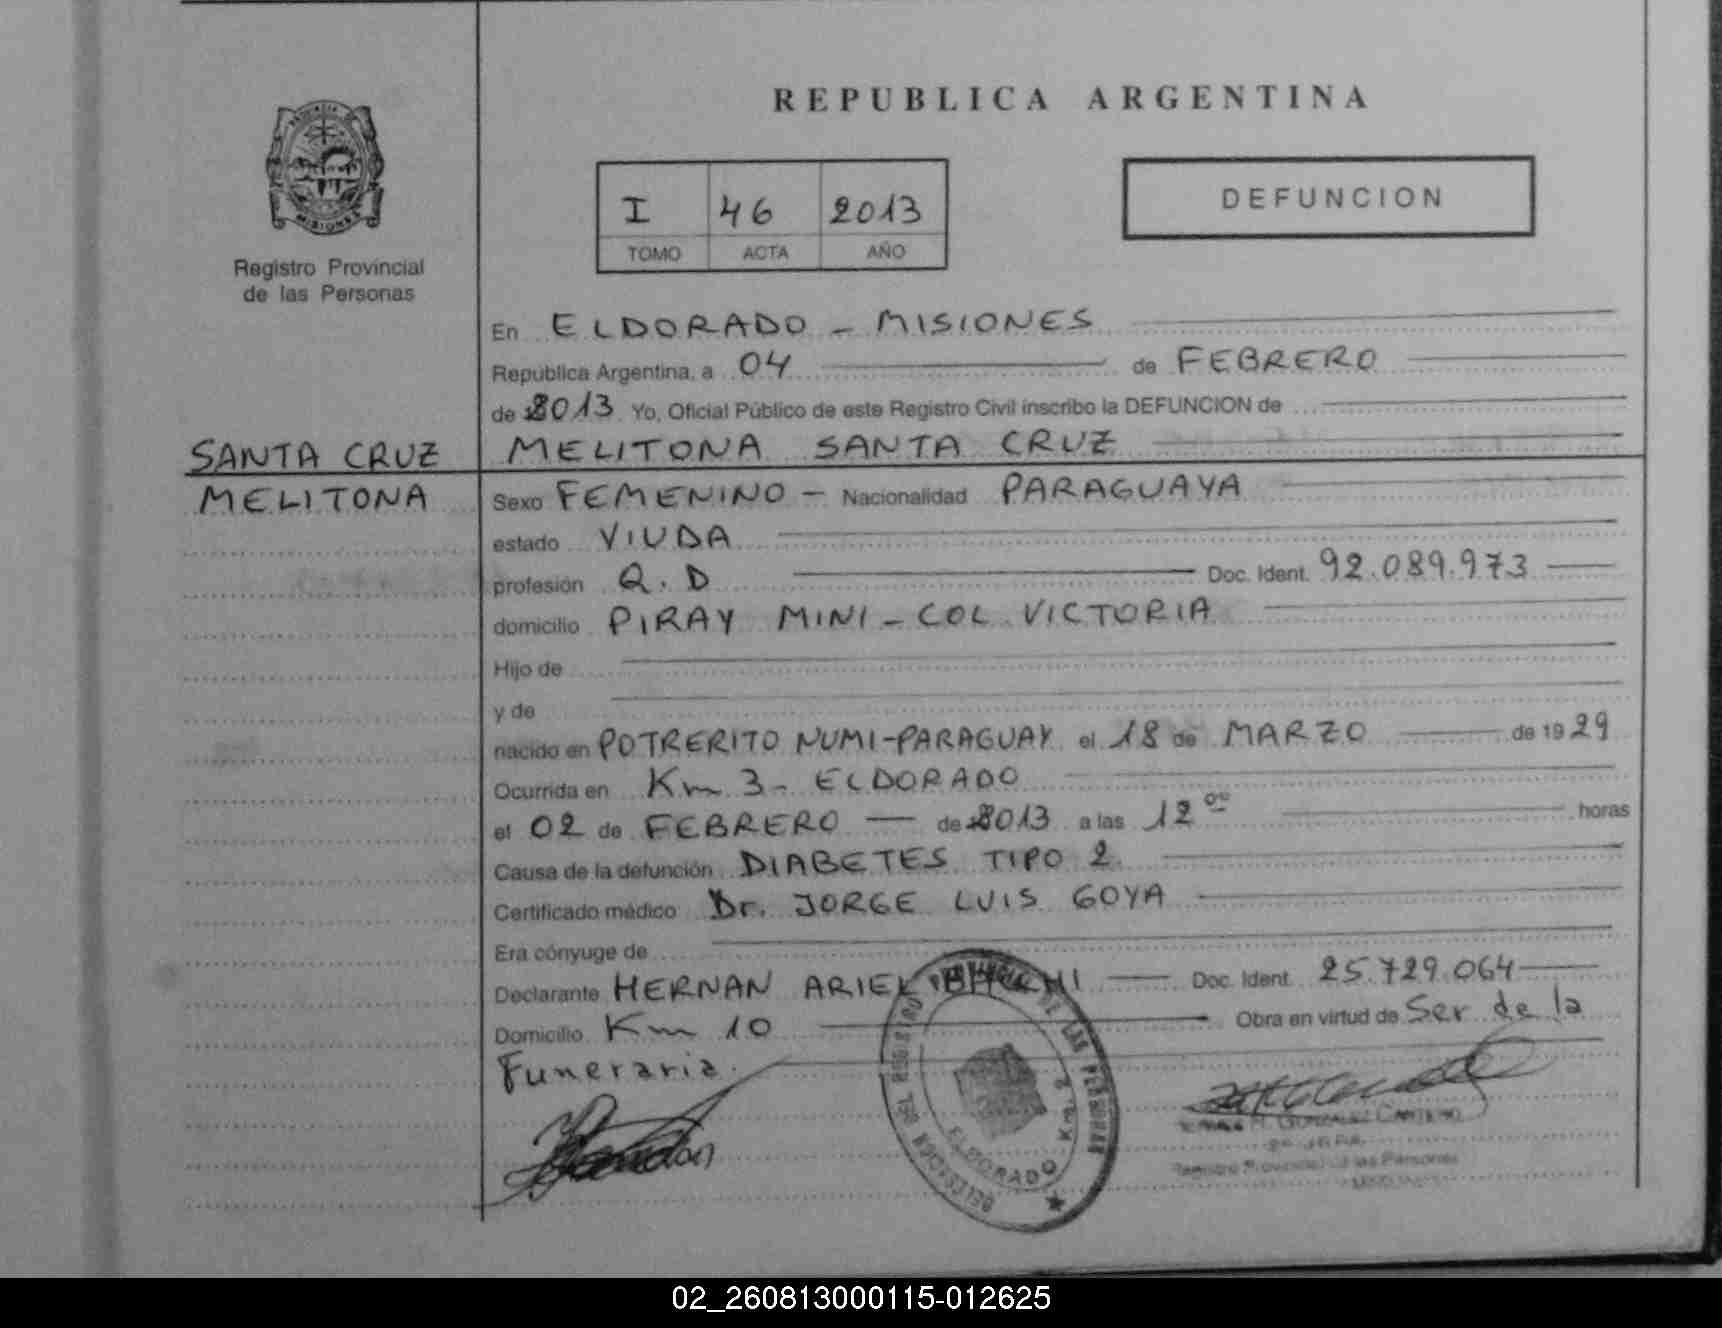 REPUBLICA ARGENTINA
PROVINCIA DE
MISIONES
Registro Provincial
de las Personas
I 46 2013
TOMO ACTA AÑO
DEFUNCION
En ELDORADO - MISIONES
República Argentina, a 04 de FEBRERO
de 2013 Yo, Oficial Público de este Registro Civil inscribo la DEFUNCION de
SANTA CRUZ
MELITONA
MELITONA SANTA CRUZ
Sexo FEMENINO - Nacionalidad PARAGUAYA
estado VIUDA
profesión Q.D Doc. Ident. 92.089.973
domicilio PIRAY MINI - COL VICTORIA
Hijo de
y de
nacido en POTRERITO NUMI-PARAGUAY el 18 de MARZO de 1929
Ocurrida en Km 3 - ELDORADO
el 02 de FEBRERO de 2013 a las 12 00 horas
Causa de la defunción DIABETES TIPO 2
Certificado médico Dr. JORGE LUIS GOYA
Era cónyuge de
Declarante HERNAN ARIEL Doc. Ident. 25.729.064
Domicilio Km 10 Obra en virtud de Ser de la
Funeraria.
DEL REGISTRO PROVINCIAL DE LAS PERSONAS
ELDORADO Km. 2
GONZALEZ
Registro Provincial de las Personas
02_260813000115-012625